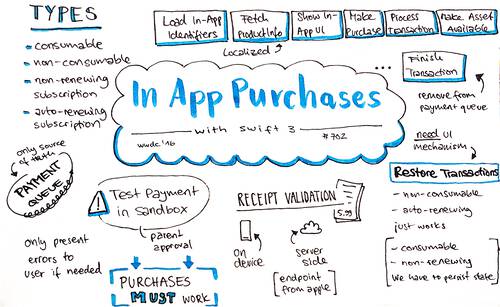 TYPES
- consumable
- non-consumable
- non-renewing
subscription
- auto-renewing
subscription
Load In-App
Identifiers
Fetch
ProductInfo
Show In-
App UI
Make
Purchase
Process
Transaction
Make Asset
Available
Localized
...
Finish
Transaction
remove from
payment queue
In App Purchases
with swift 3
wwdc '16
#702
need UI
mechanism
Restore Transactions
- non-consumable
- auto-renewing
just works
- consumable
- non-renewing
We have to persist state
only source
of truth
PAYMENT
QUEUE
only present
errors to
user if needed
!
Test Payment
in Sandbox
parent
approval
PURCHASES
MUST WORK
RECEIPT VALIDATION
5.99
on
device
server
side
[endpoint
from apple]